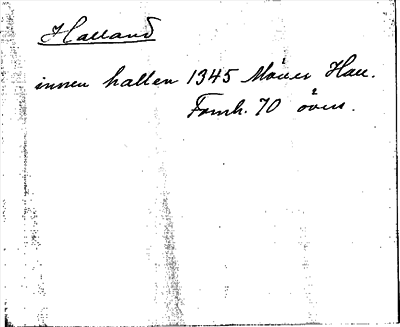 Halland
innen hallen 1345 Måner Hall.
Fornh. 70 övers.